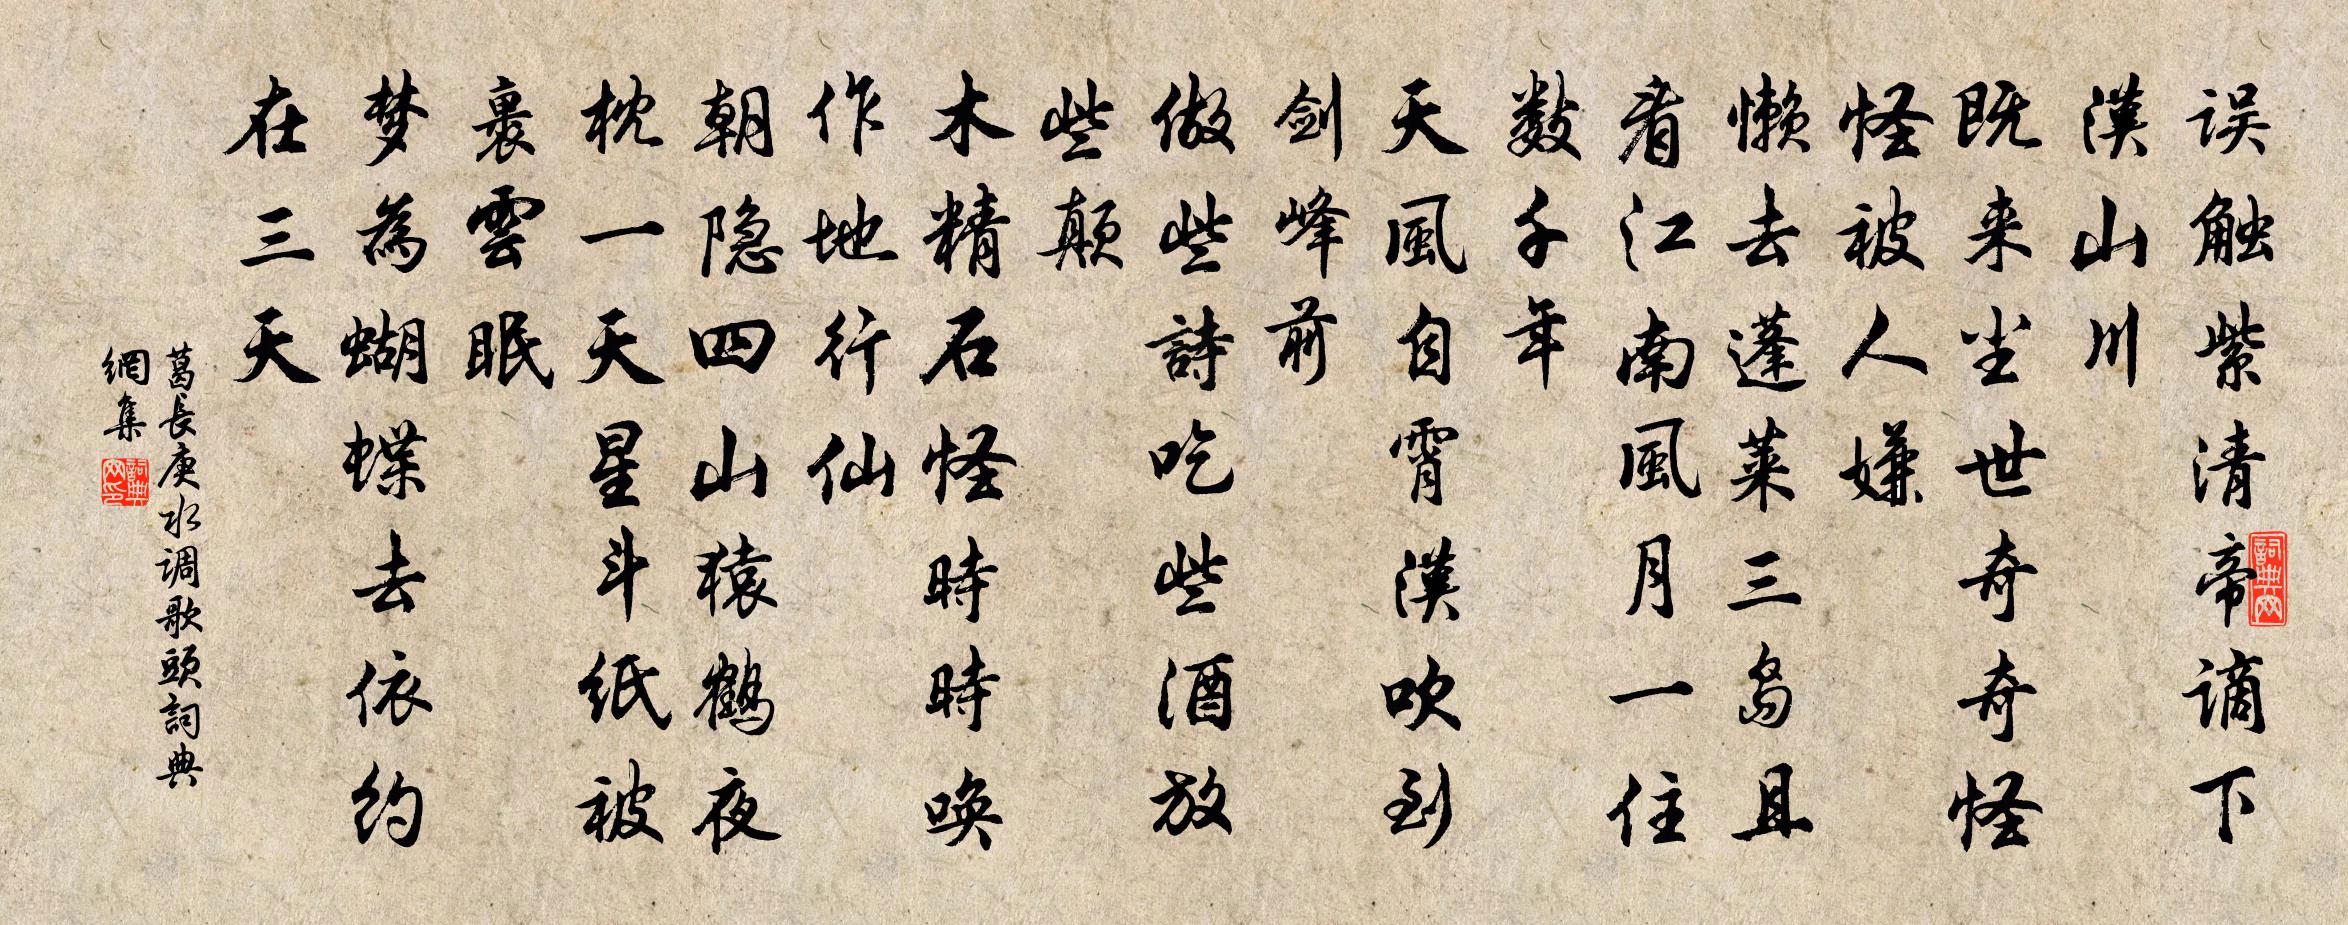 误触紫清帝谪下
漢山川
既来尘世奇奇怪
怪被人嫌
懒去蓬莱三岛且
看江南風月一住
数千年
天風自霄漢吹到
剑峰前
做些詩吃些酒放
些颠
木精石怪時時唤
作地行仙
朝隐四山猿鹤夜
枕一天星斗纸被
裹雲眠
梦為蝴蝶去依约
在三天
葛長庚水调歌頭詞典
網集
詞典网
詞典网印